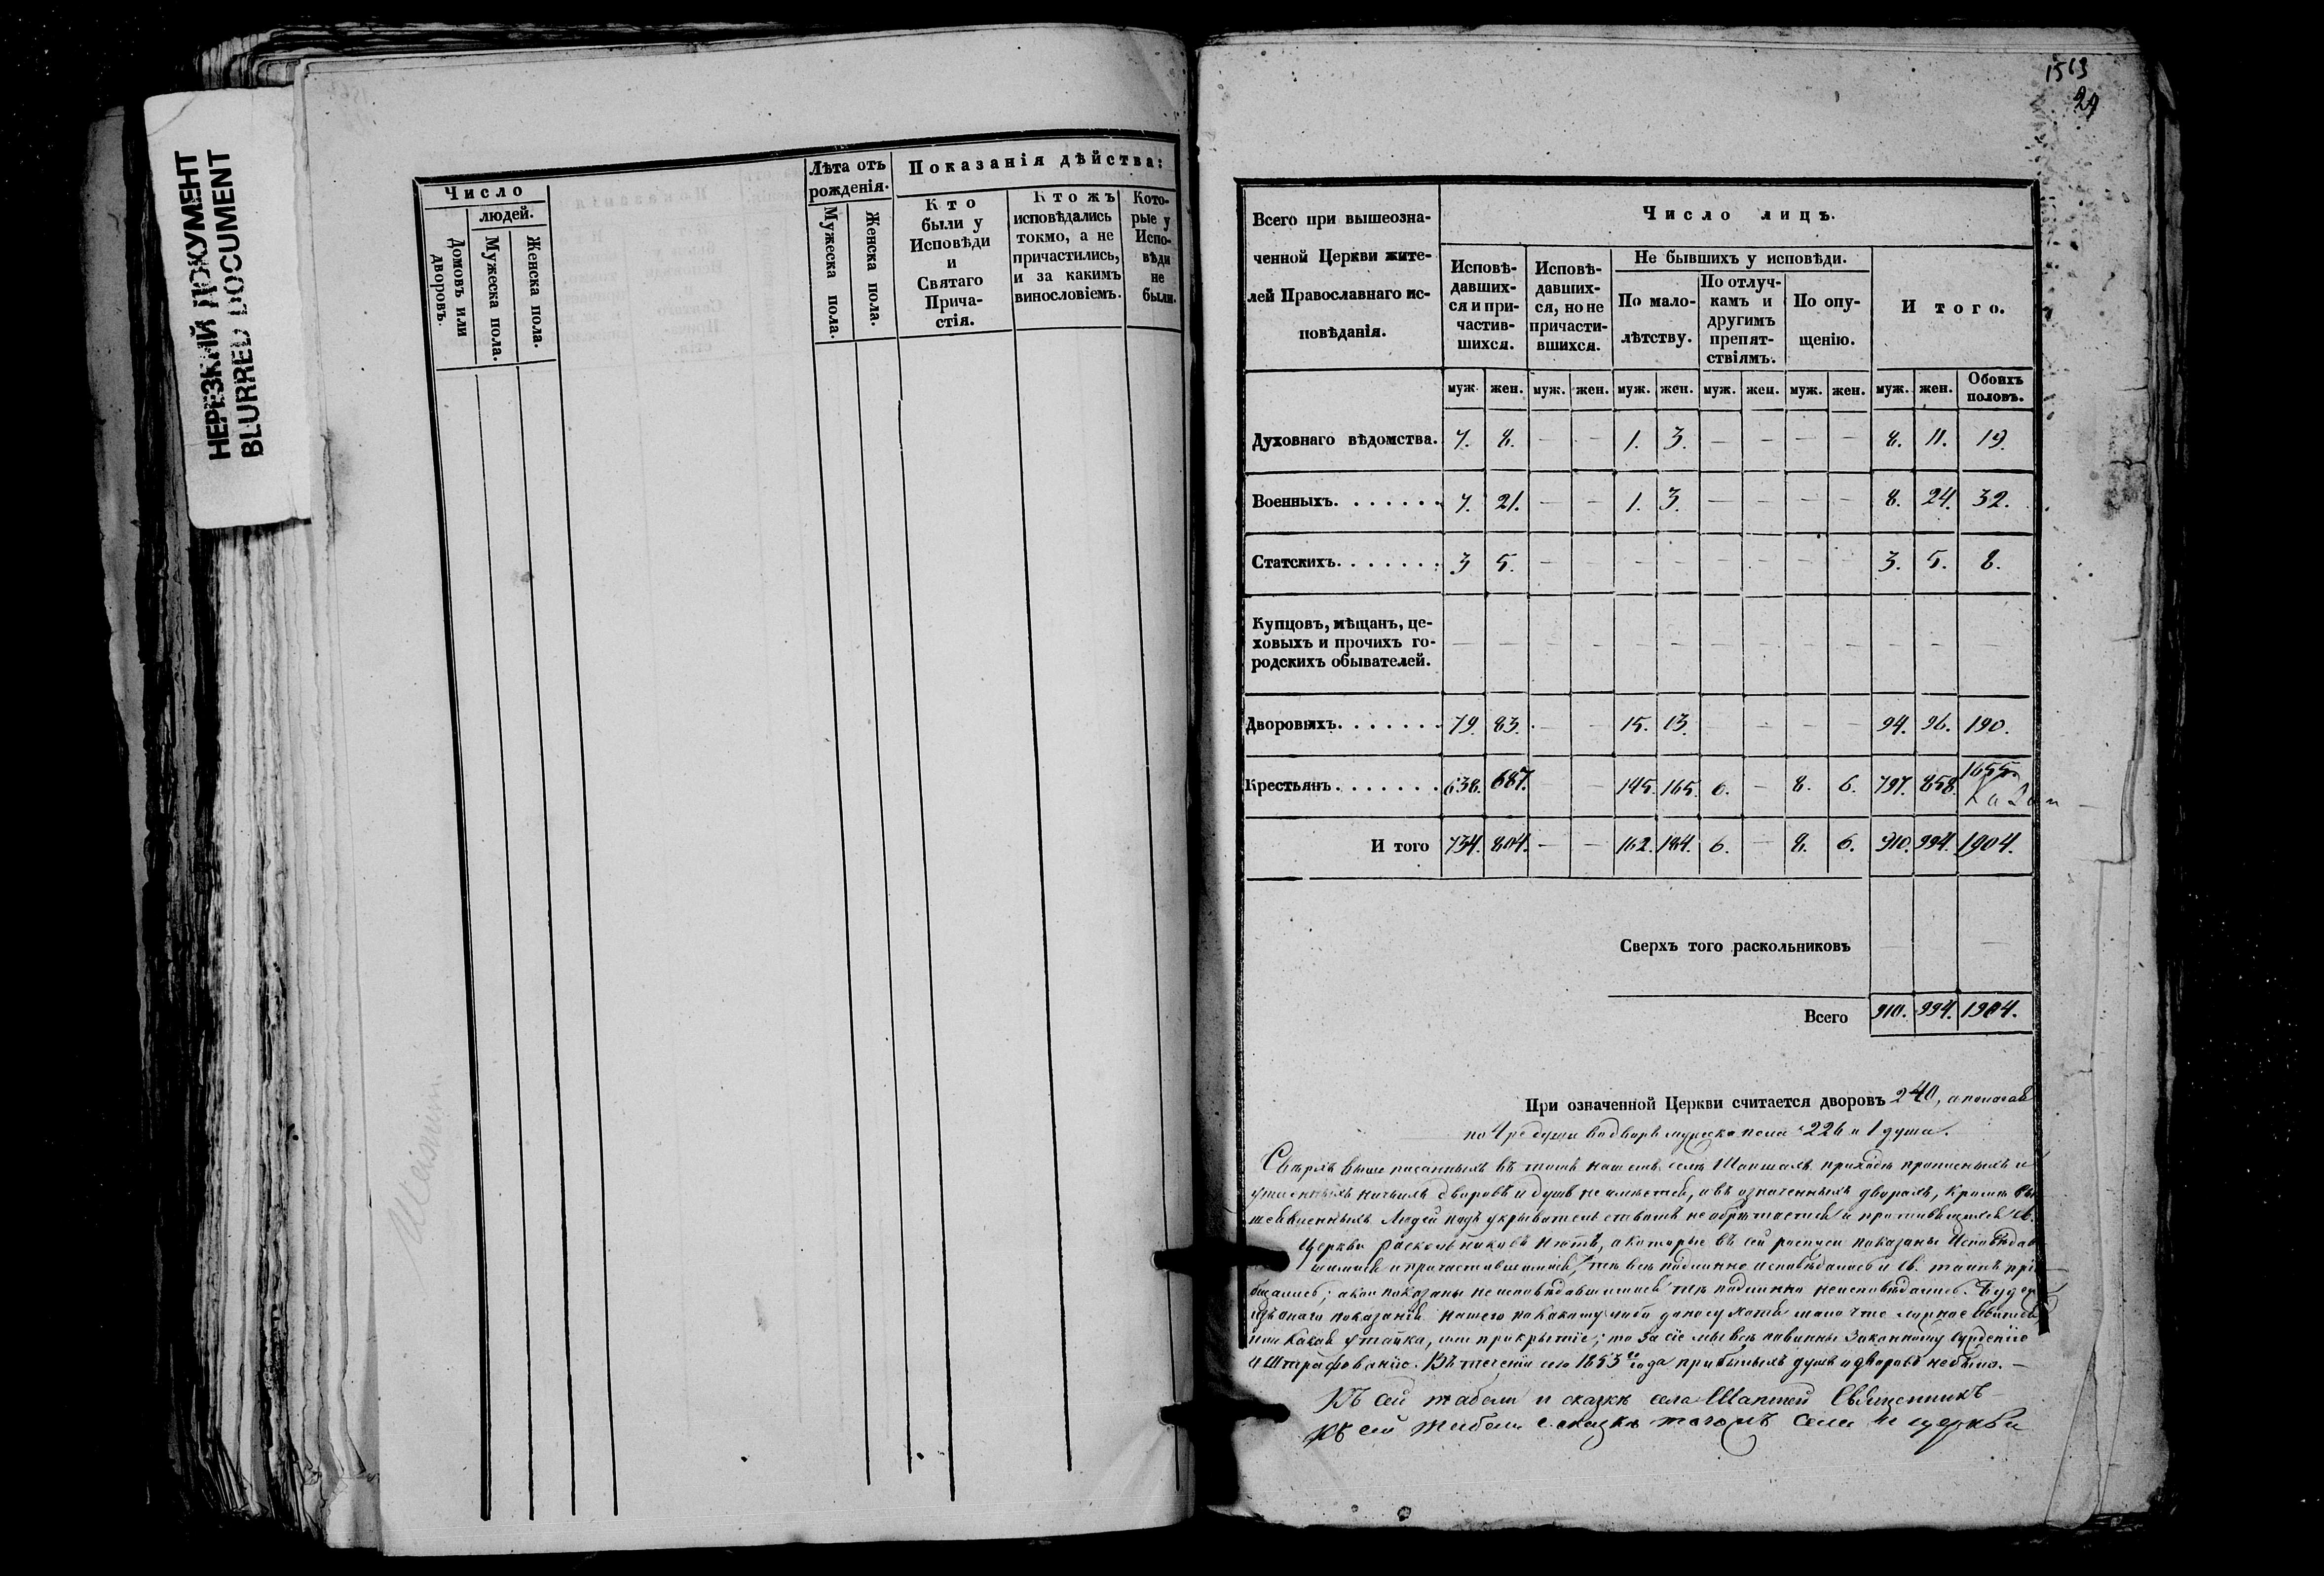 НЕРЕЗКИЙ ДОКУМЕНТ
BLURRED DOCUMENT
Число
людей.
Домовъ или дворовъ.
Мужеска пола.
Женска пола.
Лѣта отъ
рожденія.
Мужеска пола.
Женска пола.
Показанія дѣйства:
Кто
были у
Исповѣди
и
Святаго
Прича-
стія.
Ктожъ
исповѣдались
токмо, а не
причастились,
и за какимъ
винословіемъ.
Кото-
рые у
Испо-
вѣди
не
были.
1513
29
Всего при вышеозна-
ченной Церкви жите-
лей Православнаго ис-
повѣданія.
Число лицъ.
Исповѣ-
давших-
ся и при-
частив-
шихся.
Исповѣ-
давших-
ся, но не
причасти-
вшихся.
Не бывшихъ у исповѣди.
По мало-
лѣтству.
По отлуч-
камъ и
другимъ
препят-
ствіямъ.
По опу-
щенію.
И того.
муж. жен. муж. жен. муж. жен. муж. жен. муж. жен. муж. жен. Обоихъ половъ.
Духовнаго вѣдомства. 7. 8. — — 1. 3. — — — — 8. 11. 19.
Военныхъ. . . . . . . 7. 21. — — 1. 3. — — — — 8. 24. 32.
Статскихъ. . . . . . . 3 5. — — — — — — — — 3. 5. 8.
Купцовъ, мѣщанъ, це-
ховыхъ и прочихъ го-
родскихъ обывателей. — — — — — — — — — — — —
Дворовыхъ. . . . . . . 79. 83. — — 15. 13. — — — — 94. 96. 190.
Крестьянъ. . . . . . . 638. 687. — — 145. 165. 6. — 8. 6. 797. 858. 1655.
И того 734. 804. — — 162. 184. 6. — 8. 6. 910. 994. 1904.
Сверхъ того раскольниковъ — —
Всего 910. 994. 1904.
При означенной Церкви считается дворовъ 240, а полагая
по 4 ре души в дворѣ мужеска пола 226 и 1 душа.
Сверхъ выше писанныхъ въ томъ нашемъ селѣ приходѣ прописныхъ и
утаенныхъ ничьихъ дворовъ и душъ не имѣется, а въ означенныхъ дворахъ, кромѣ вы
людей подъ укрывательствомъ не обрѣтается и противящихся св.
Церкви раскольниковъ нѣтъ, а которые въ сей росписи показаны исповѣдав
шимися и причастившимися, тѣ всѣ подлинно исповѣдались и св. таинъ прі
общались; а кои показаны не исповѣдавшимися тѣ подлинно не исповѣдались. Буде
показанія нашего по какому либо доносу хотя мало что явится
или какая утайка, или прикрытіе; то за сіе мы всѣ повинны законному сужденію
и штрафованію. Въ теченіи сего 1853 го года прибылыхъ душъ и дворовъ не было. —
Къ сей табели и сказкѣ села Священникъ
Къ сей табели и сказкѣ тогожъ села и церкви